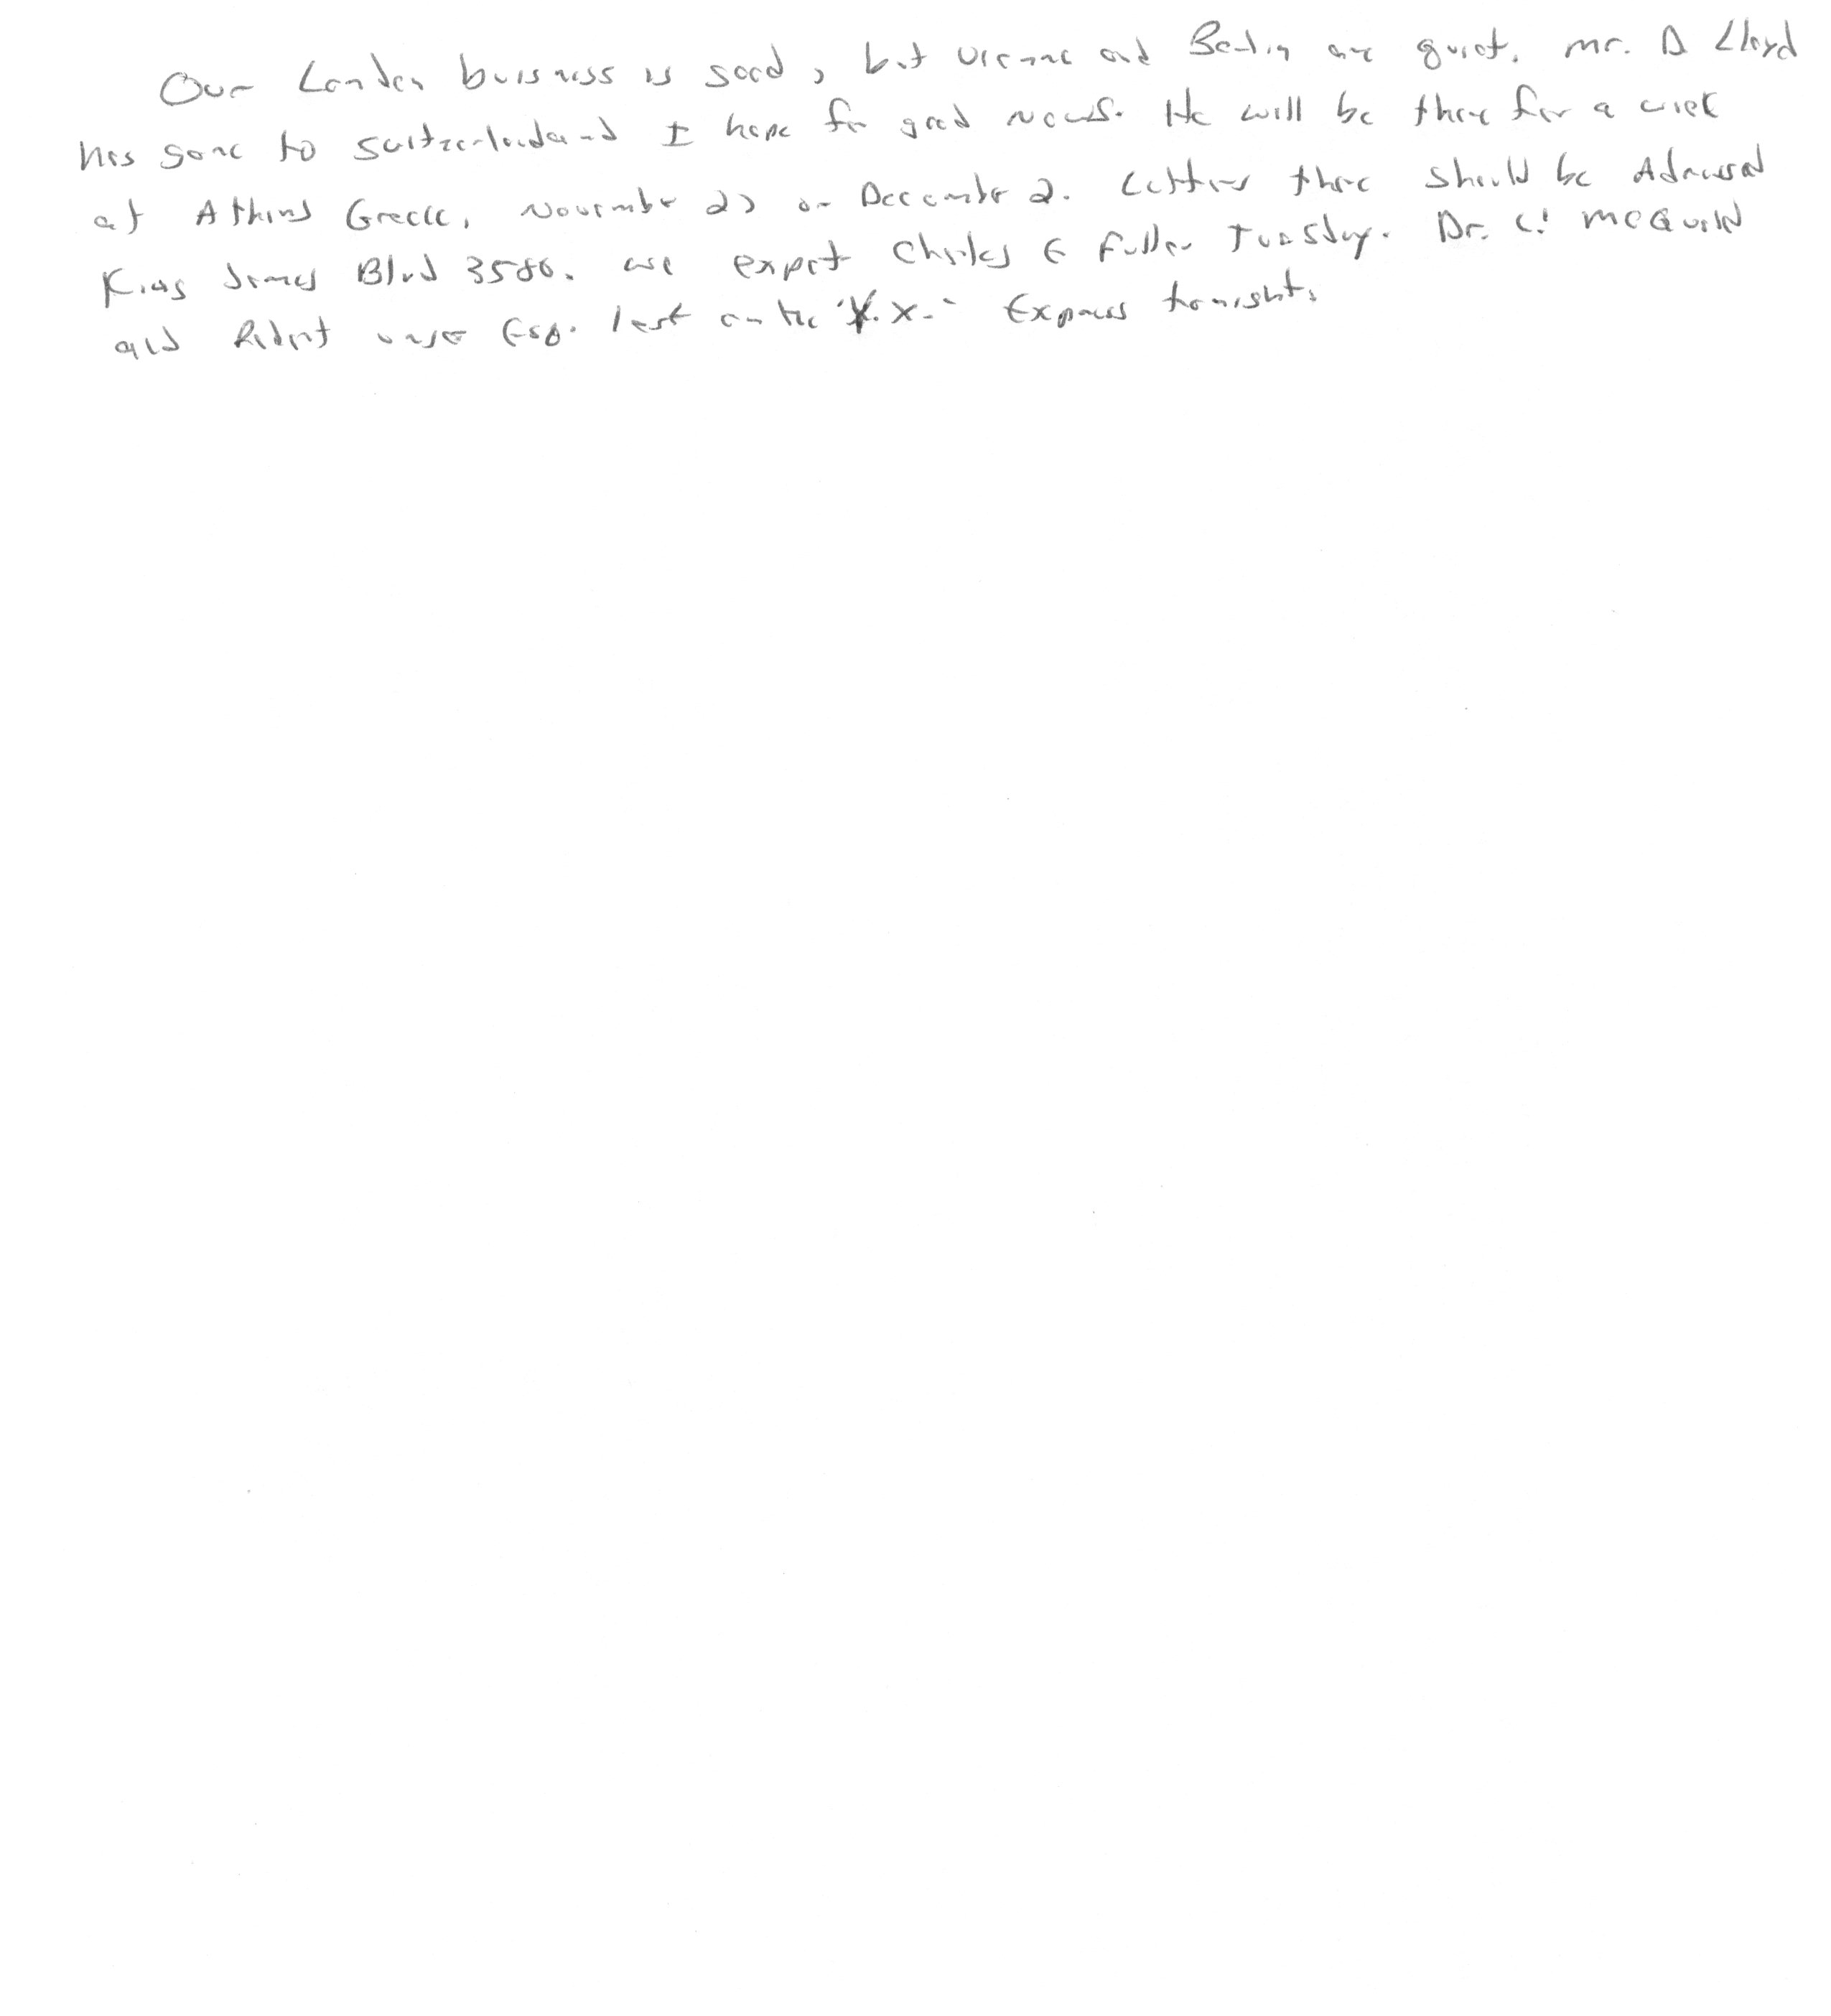 Our London buisness is good, but Vienna and Berlin are quiet. Mr. D Lloyd
has gone to Switzerland and I hope for good news. He will be there for a week
at Athens Greece, November 27 or December 2. Letters there should be Adressed
King James Blvd 3580. We expect Charles E Fuller Tuesday. Dr. L! McQuaid
and Robert Unger Esq. left on the "X.X." Express tonight.